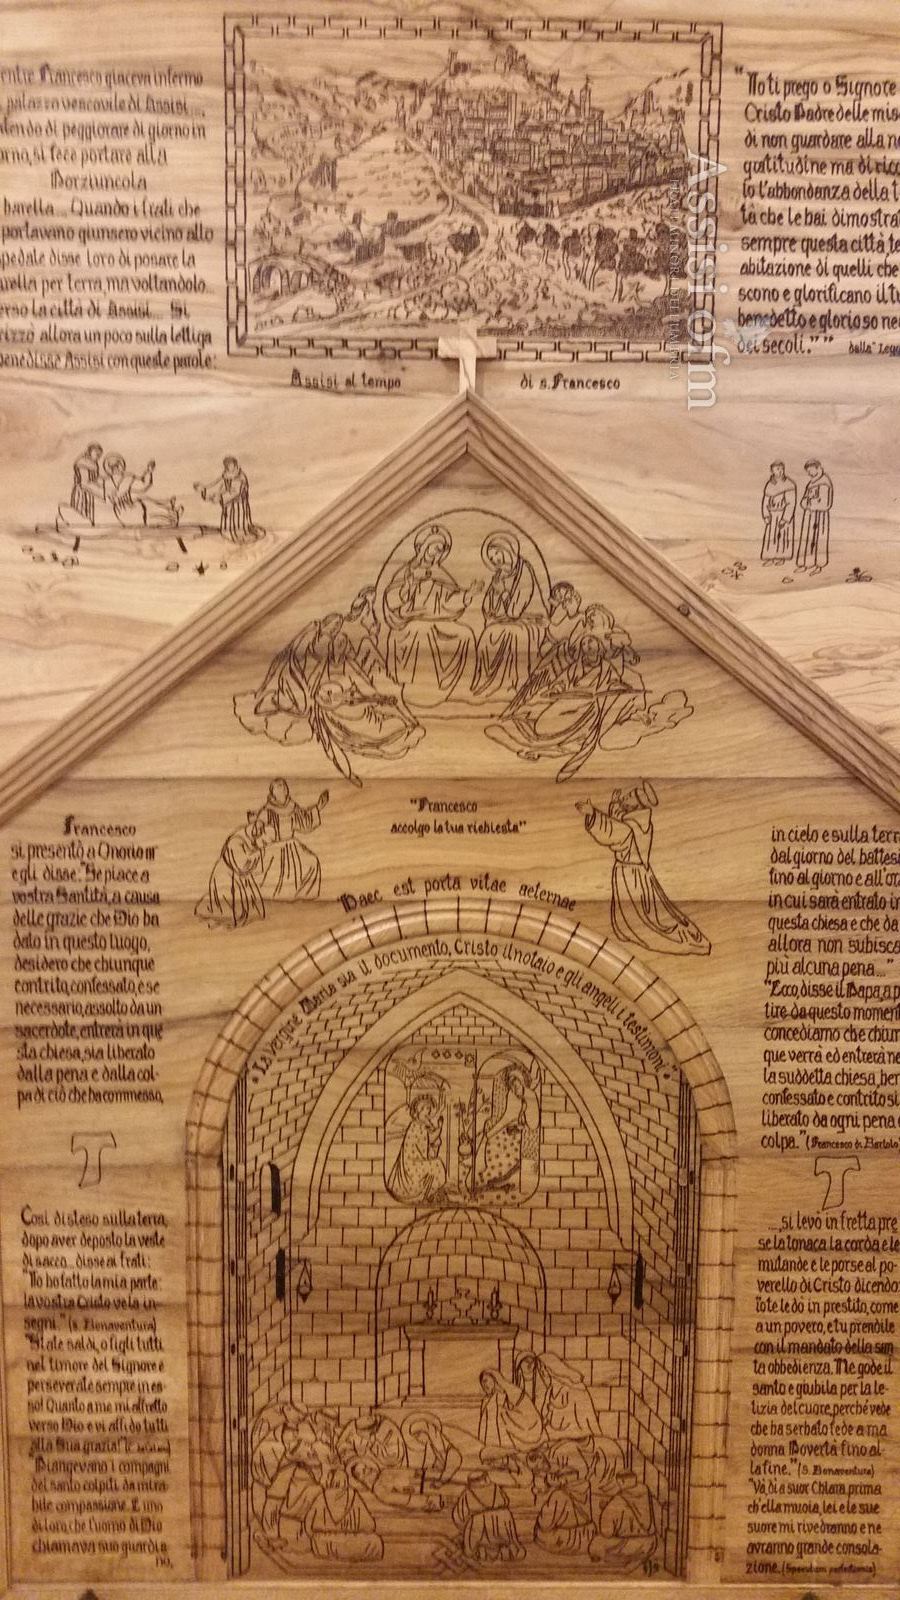 entre Francesco giaceva infermo
palazzo vescovile di Assisi...
dendo di peggiorare di giorno in
orno, si fece portare alla
Porziuncola
barella... Quando i frati che
portavano giunsero vicino allo
spedale disse loro di posare la
arella per terra, ma voltandolo
verso la città di Assisi... Si
rizzò allora un poco sulla lettiga
benedisse Assisi con queste parole:
di non guardare alla no
gratitudine ma di rico
l'abbondanza della t
tà che le hai dimostrat
sempre questa città te
abitazione di quelli che
scono e glorificano il tu
benedetto e glorioso ne
dei secoli.""
Assisi.fm
Assisi al tempo di s. Francesco
"Francesco
accolgo la tua richiesta"
"Haec est porta vitae aeternae
"La vergine Maria sia il documento, Cristo il notaio e gli angeli i testimoni"
Francesco
si presentò a Onorio III
e gli disse: "Se piace a
vostra Santità, a causa
delle grazie che Dio ha
dato in questo luogo,
desidero che chiunque
contrito, confessato, e se
necessario, assolto da un
sacerdote, entrerà in que
sta chiesa, sia liberato
dalla pena e dalla col-
pa di ciò che ha commesso,
in cielo e sulla terra
dal giorno del battesi
fino al giorno e all'ora
in cui sarà entrato in
questa chiesa e che da
allora non subisca
più alcuna pena..."
"Ecco, disse il Papa, a p
tire da questo moment
concediamo che chiun
que verrà ed entrerà ne
la suddetta chiesa, ben
confessato e contrito si
liberato da ogni pena e
colpa." (Francesco di Bartolo
T
Così disteso sulla terra,
dopo aver deposto la veste
di sacco... disse ai frati:
"Io ho fatto la mia parte:
la vostra Cristo ve la in-
segni." (s. Bonaventura)
"State saldi, o figli tutti
nel timore del Signore e
perseverate sempre in es-
so! Quanto a me mi affretto
verso Dio e vi affido tutti
alla Sua grazia!"
"Piangevano i compagni
del santo colpiti da mira
bile compassione. E uno
di loro che l'uomo di Dio
chiamava suo guardia
no,
T
...si levò in fretta pre
se la tonaca la corda e le
mutande e le porse al po-
verello di Cristo dicendo:
"Io te le dò in prestito, come
a un povero, e tu prendile
con il mandato della san
ta obbedienza. Ne gode il
santo e giubila per la le-
tizia del cuore, perché vede
che ha serbato fede a ma
donna Povertà fino al-
la fine." (S. Bonaventura)
"Và, dì a suor Chiara, prima
ch'ella muoia, lei e le sue
suore mi rivedranno e ne
avranno grande consola-
zione. (Speculum perfectionis)